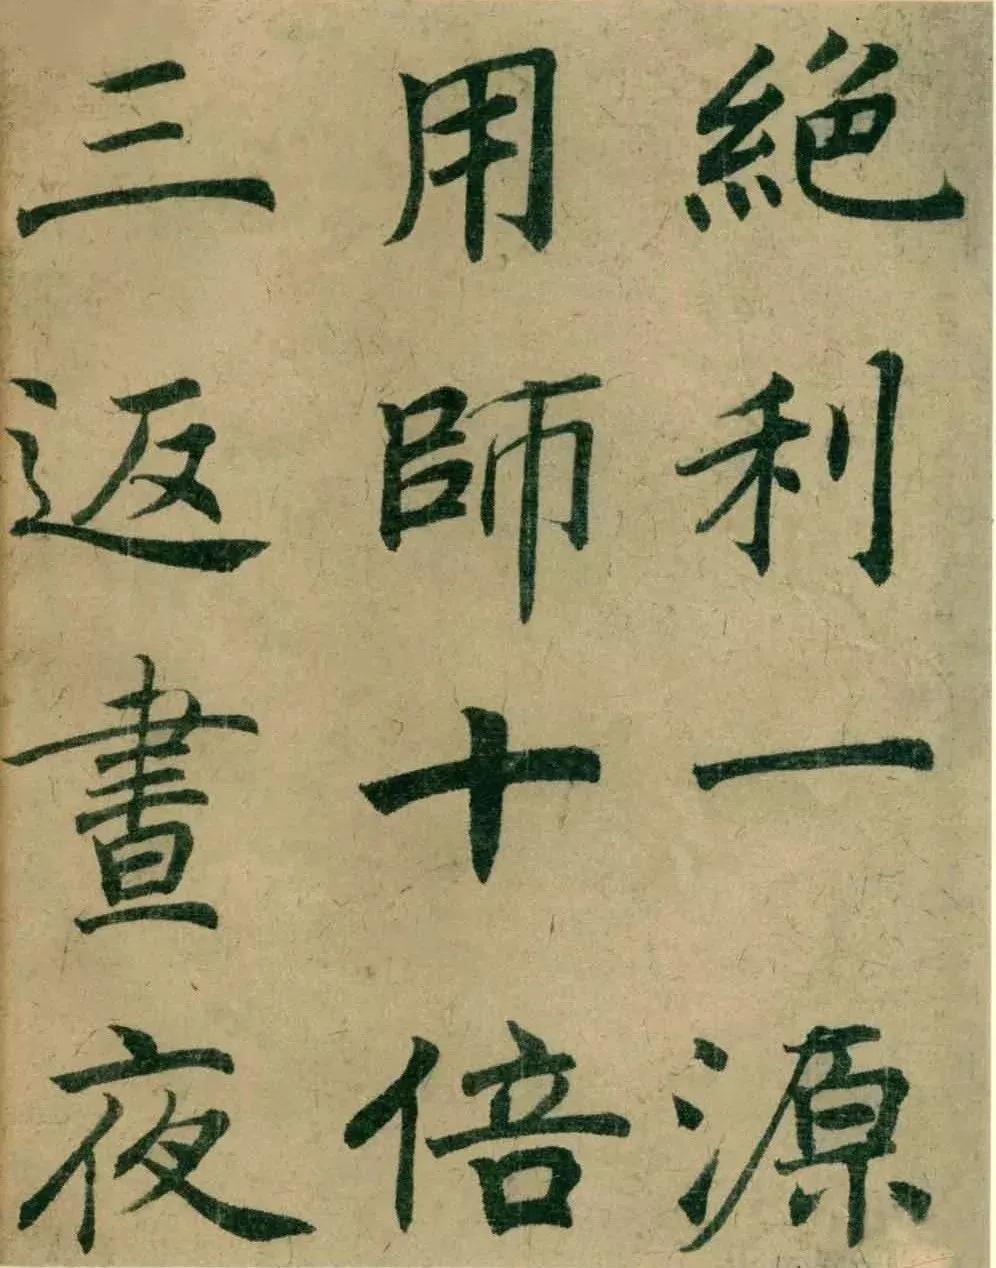 絕利一源
用師十倍
三返晝夜